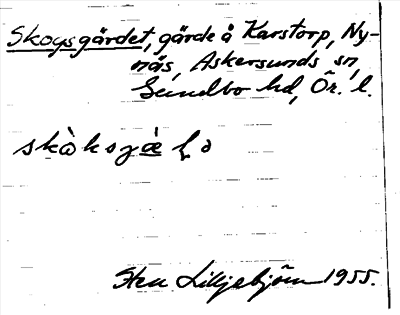 Skogsgärdet, gärde å Karstorp, Ny-
näs, Askersunds sn,
Sundbo hd, Ör. l.
skòksgæ̀ ɽə
Sten Lilljebjörn 1955.